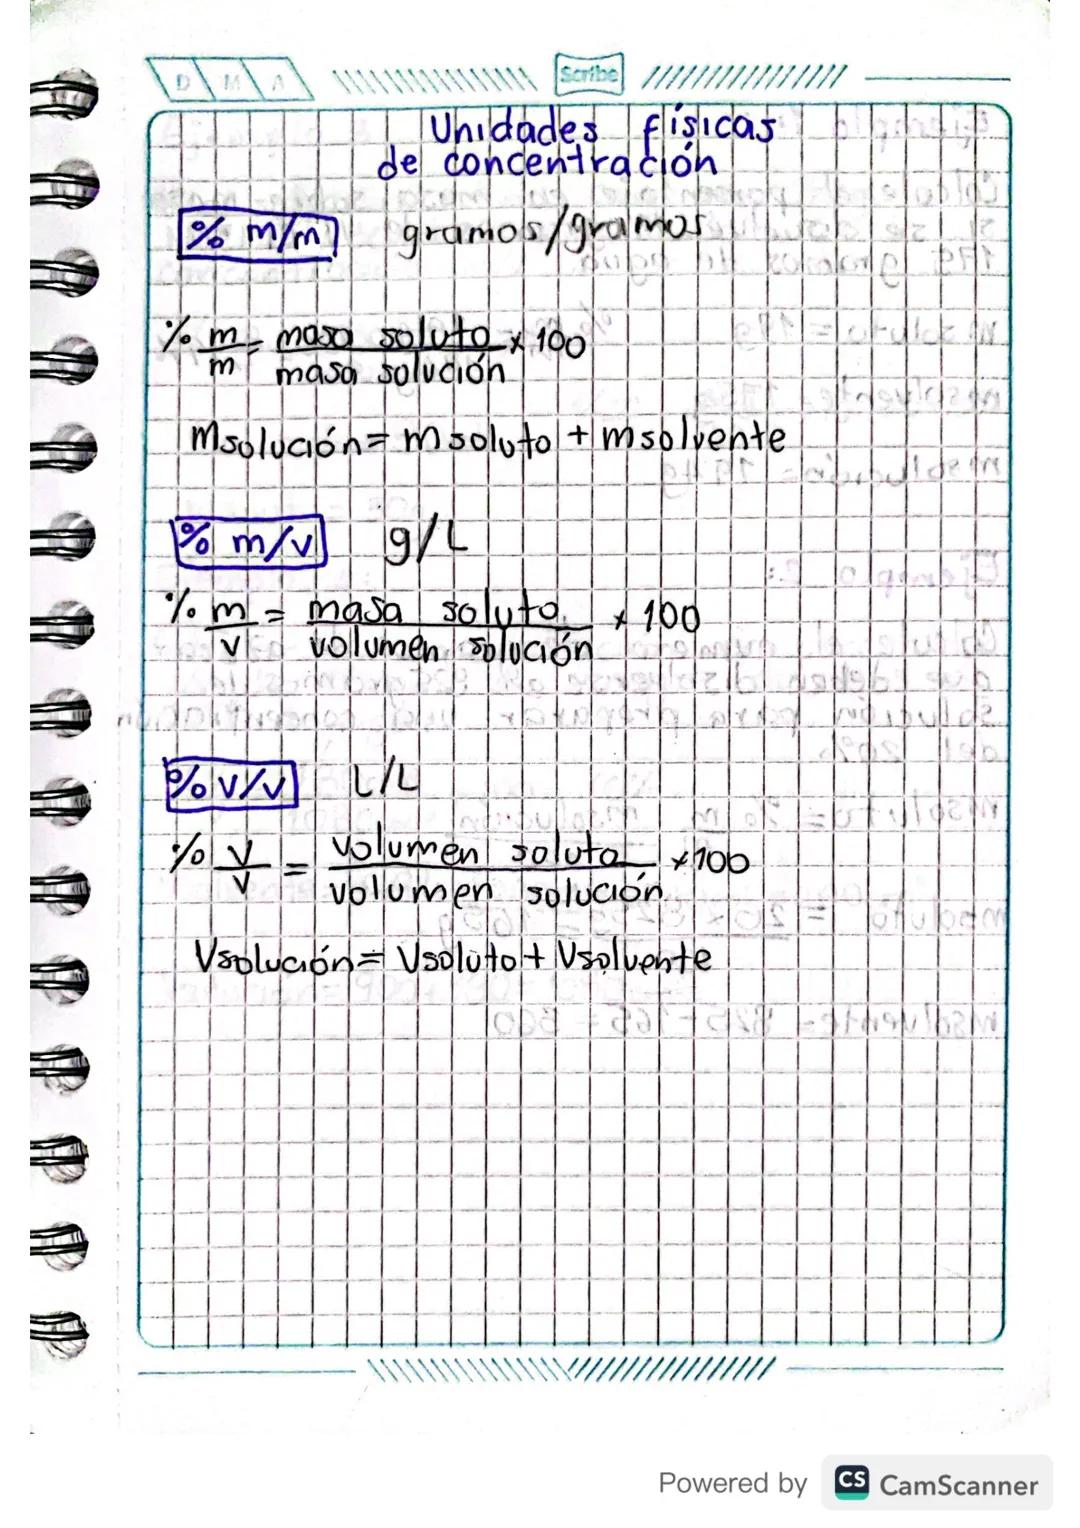 D M A
Scribe
Unidades físicas
de concentración
% m/m gramos/gramos
% m/m = masa soluto/masa solución x 100
msolución = msoluto + msolvente
% m/v g/L
% m/v = masa soluto/volumen solución x 100
% v/v L/L
% v/v = volumen soluto/volumen solución x100
Vsolución = Vsoluto + Vsolvente
Powered by CS CamScanner